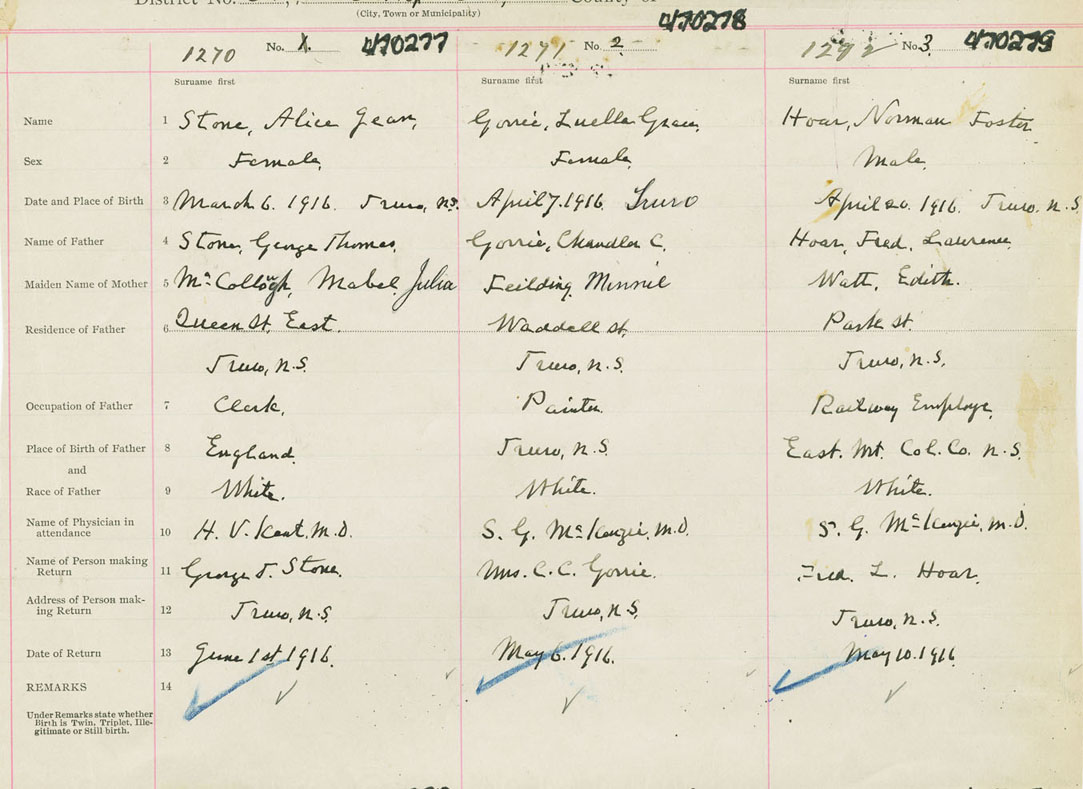 District No. County of
(City, Town or Municipality)
1270 No. 1. 470277 1271 No. 2 470278 1272 No. 3 470279
Surname first Surname first Surname first
Name 1 Stone, Alice Jean, Gorrie, Luella Grace, Hoar, Norman Foster
Sex 2 Female, Female, Male,
Date and Place of Birth 3 March 6. 1916. Truro, N.S. April 7. 1916. Truro April 20. 1916. Truro, N.S.
Name of Father 4 Stone, George Thomas, Gorrie, Chandler C. Hoar, Fred. Lawrence,
Maiden Name of Mother 5 McCollough, Mabel Julia Feilding, Minnie Watt, Edith.
Residence of Father 6 Queen St. East. Waddell St. Park St.
Truro, N.S. Truro, N.S. Truro, N.S.
Occupation of Father 7 Clerk, Painter. Railway Employe,
Place of Birth of Father 8 England. Truro, N.S. East. Mt. Col. Co. N.S.
and
Race of Father 9 White. White. White.
Name of Physician in
attendance 10 H. V. Kent, M.D. S. G. McKenzie, M.D. S. G. McKenzie, M.D.
Name of Person making
Return 11 George T. Stone. Mrs. C. C. Gorrie. Fred. L. Hoar,
Address of Person mak-
ing Return 12 Truro, N.S. Truro, N.S. Truro, N.S.
Date of Return 13 June 1st 1916. May 6. 1916. May 10. 1916
REMARKS 14
Under Remarks state whether
Birth is Twin, Triplet, Ille-
gitimate or Still birth.